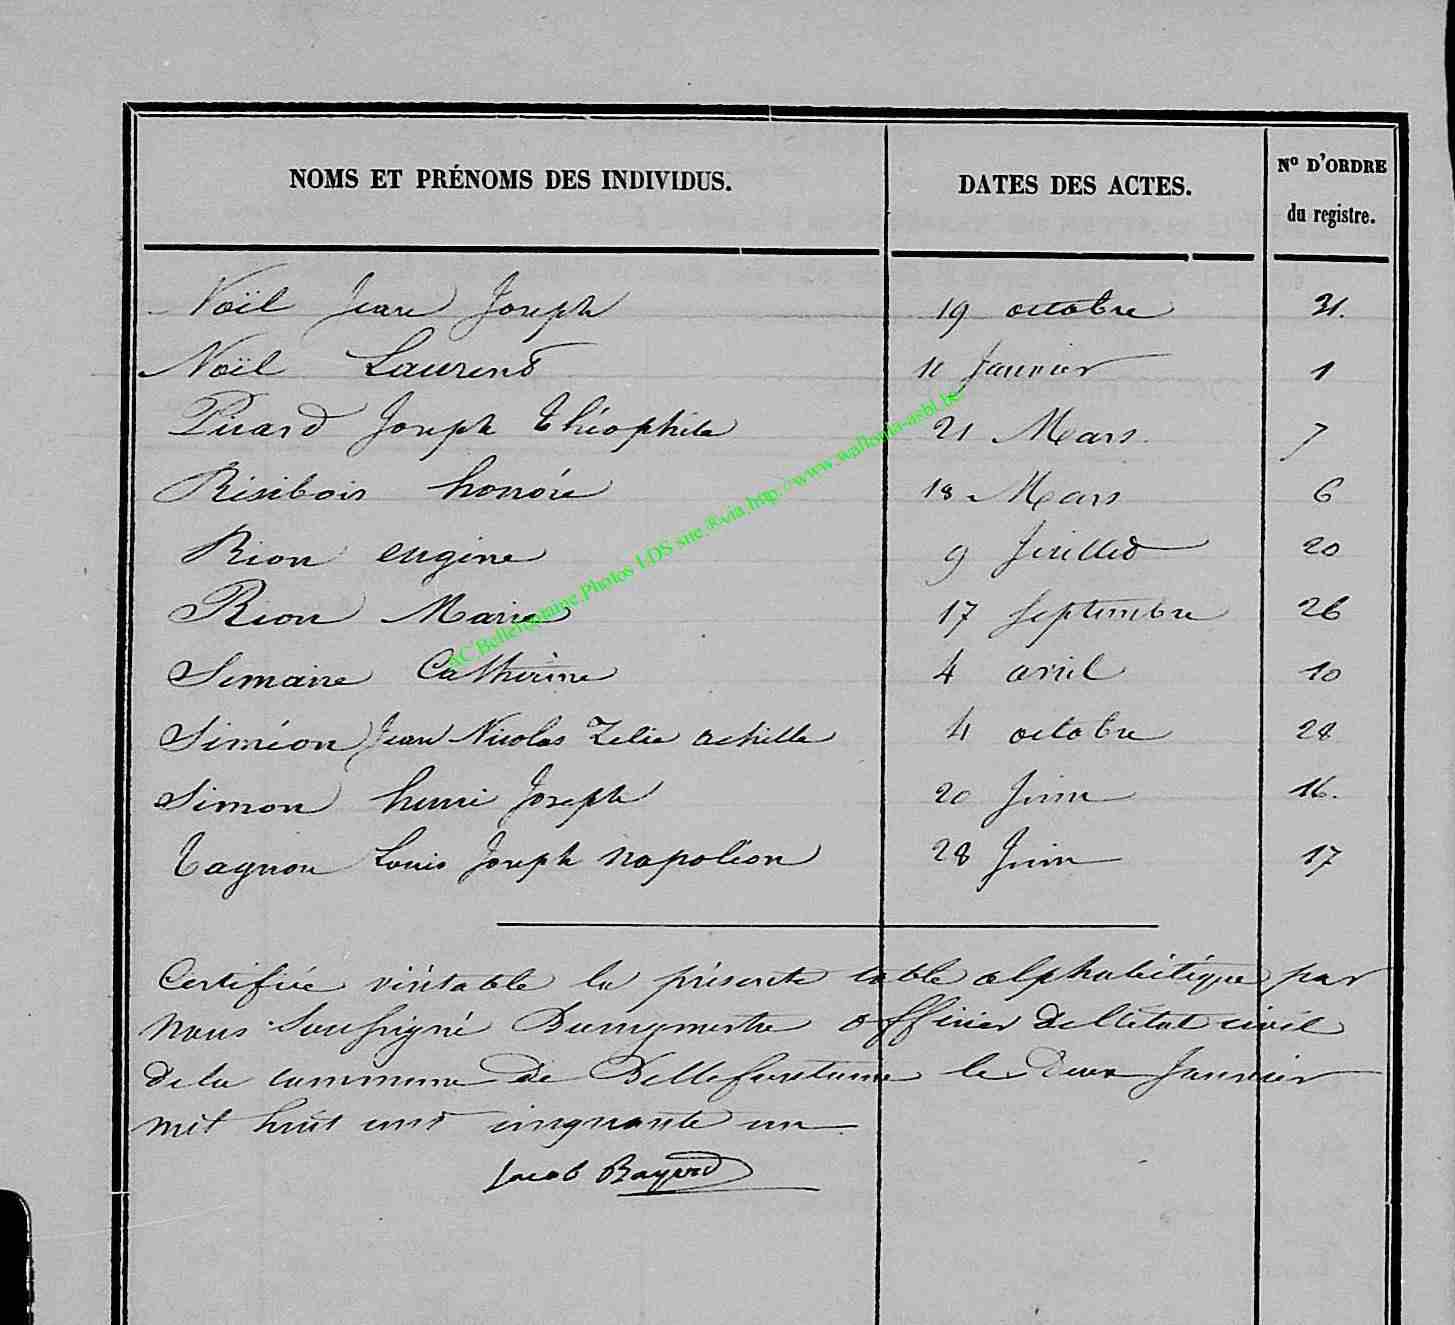 NOMS ET PRÉNOMS DES INDIVIDUS. DATES DES ACTES. N° D'ORDRE du registre.
Noël Jean Joseph 19 octobre 31.
Noël Laurent 11 Janvier 1
Picard Joseph théophile 21 Mars. 7
Résibois honoré 18 Mars 6
Rion eugène 9 Juillet 20
Rion Marie 17 Septembre 26
Semaire Catherine 4 avril 10
Siméon Jean Nicolas Zelie achille 4 octobre 28
Simon henri Joseph 20 Juin 16.
Tagnon Louis Joseph napoléon 28 Juin 17
Certifiée véritable la présente table alphabétique par
Nous Soussigné Bourgmestre officier de l'état civil
de la commune de Bellefontaine le deux Janvier
mil huit cent cinquante un
Jacob Bayard
AC Bellefontaine Photos LDS sne.®via http://www.wallonia-asbl.be/